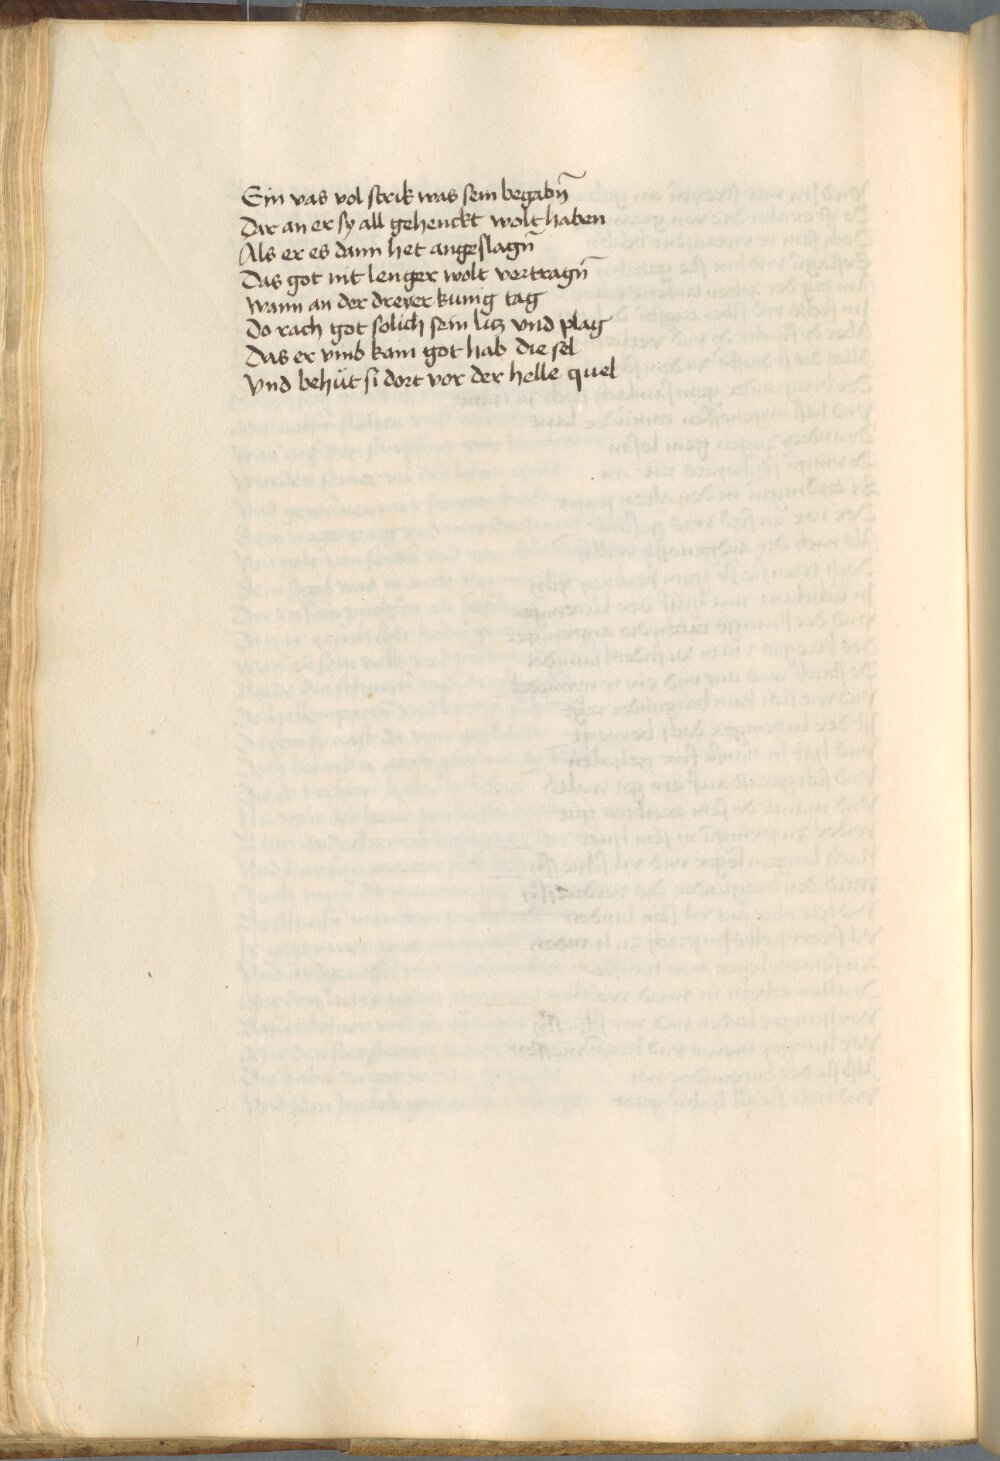 Ein vas vol strik was sein begabn̄
Dar an er sy all gehenckt wolt haben
Als er es dann het angeslagn̄
Das got nit lenger wolt vertragn̄
Wann an der dreyer kunig tag
Do rach got solich sein lis vnd plag
Das er vmb kam got hab die sel
Vnd behüt si dort vor der helle quel